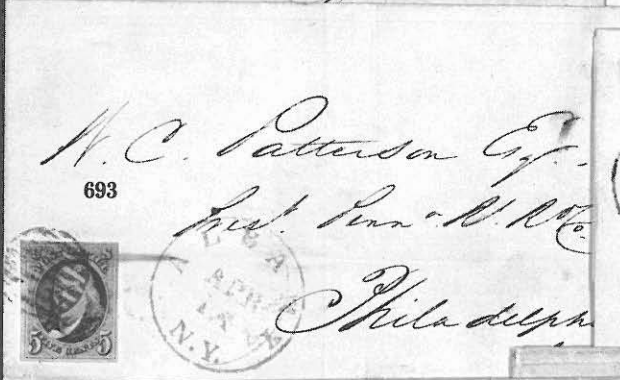 W. C. Patterson Esq.
693
Prest. Penna R. R. Co.
ALBANY
APR
N.Y.
Philadelph
5 5